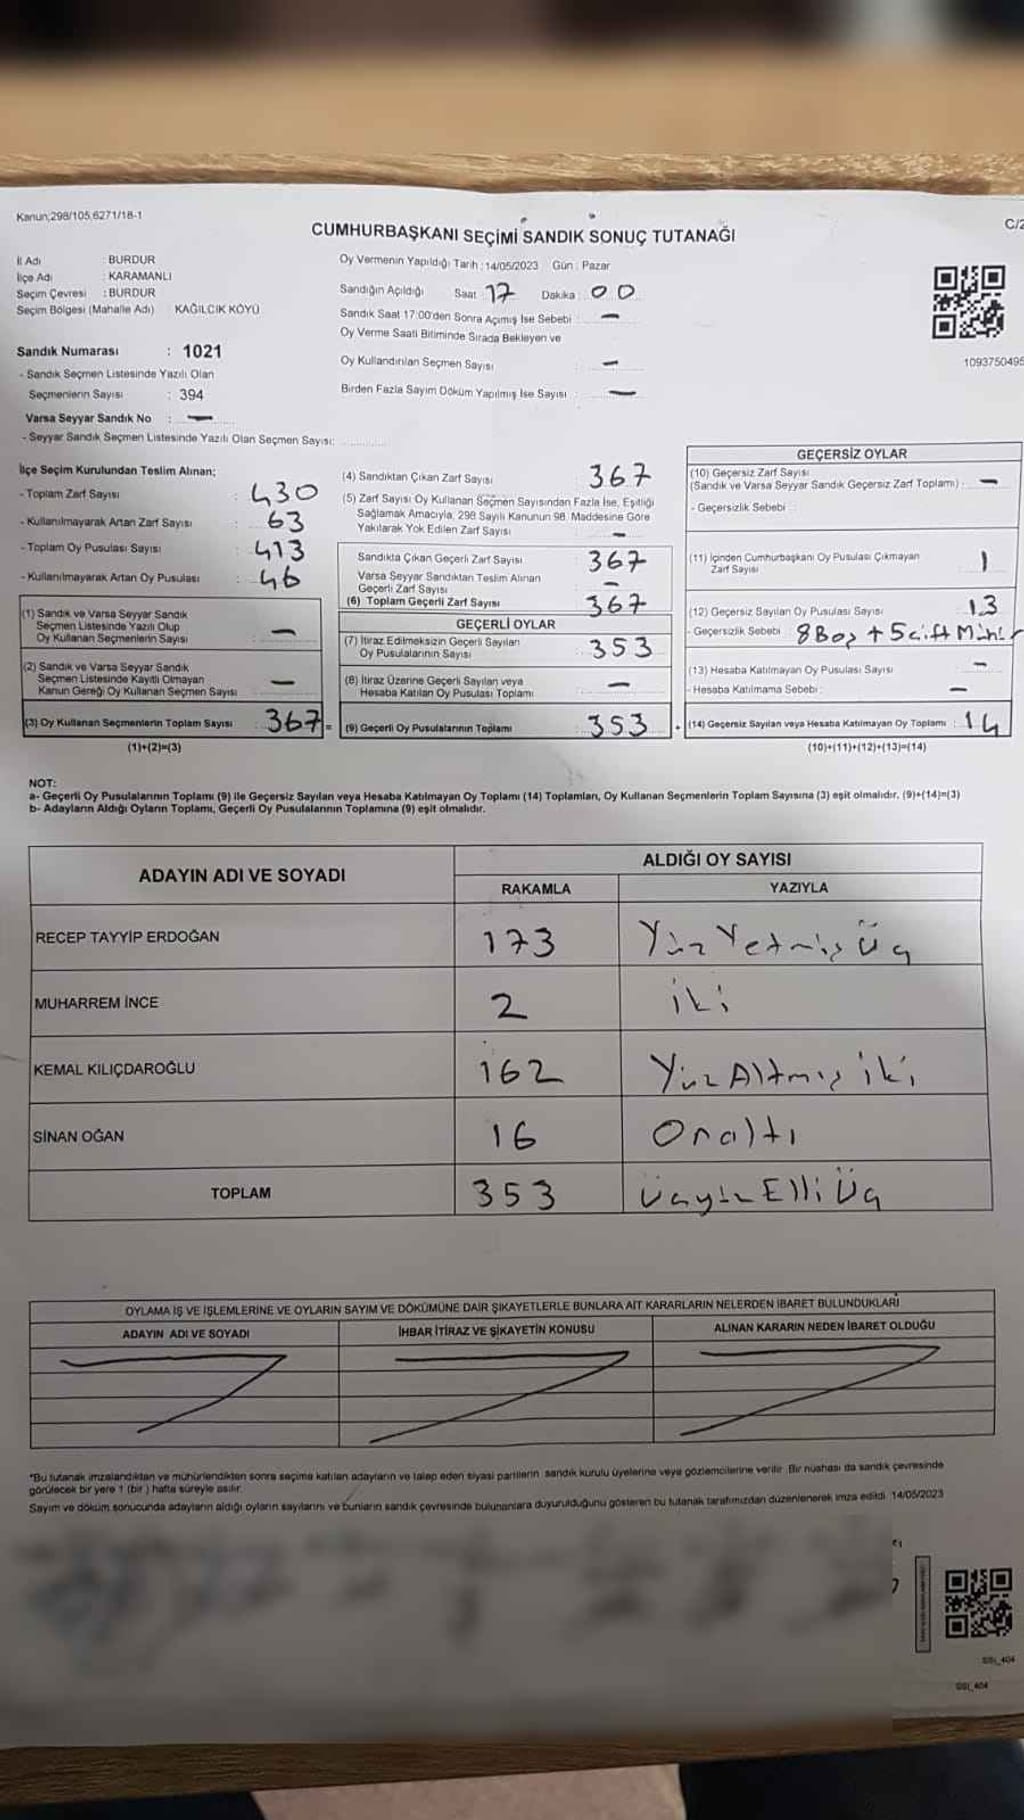 Kanun;298/105,6271/18-1
C/2
CUMHURBAŞKANI SEÇİMİ SANDIK SONUÇ TUTANAĞI
İl Adı : BURDUR
İlçe Adı : KARAMANLI
Seçim Çevresi : BURDUR
Seçim Bölgesi (Mahalle Adı) KAĞILCIK KÖYÜ
Sandık Numarası : 1021
- Sandık Seçmen Listesinde Yazılı Olan
Seçmenlerin Sayısı : 394
Varsa Seyyar Sandık No : —
- Seyyar Sandık Seçmen Listesinde Yazılı Olan Seçmen Sayısı:
Oy Vermenin Yapıldığı Tarih : 14/05/2023 Gün : Pazar
Sandığın Açıldığı Saat : 17 Dakika : 00
Sandık Saat 17:00'den Sonra Açımış İse Sebebi : —
Oy Verme Saati Bitiminde Sırada Bekleyen ve
Oy Kullandırılan Seçmen Sayısı : —
Birden Fazla Sayım Döküm Yapılmış İse Sayısı : —
1093750495
İlçe Seçim Kurulundan Teslim Alınan;
- Toplam Zarf Sayısı : 430
- Kullanılmayarak Artan Zarf Sayısı : 63
- Toplam Oy Pusulası Sayısı : 413
- Kullanılmayarak Artan Oy Pusulası : 46
(1) Sandık ve Varsa Seyyar Sandık
Seçmen Listesinde Yazılı Olup
Oy Kullanan Seçmenlerin Sayısı —
(2) Sandık ve Varsa Seyyar Sandık
Seçmen Listesinde Kayıtlı Olmayan
Kanun Gereği Oy Kullanan Seçmen Sayısı —
(3) Oy Kullanan Seçmenlerin Toplam Sayısı 367 =
(1)+(2)=(3)
(4) Sandıktan Çıkan Zarf Sayısı 367
(5) Zarf Sayısı Oy Kullanan Seçmen Sayısından Fazla İse, Eşitliği
Sağlamak Amacıyla, 298 Sayılı Kanunun 98. Maddesine Göre
Yakılarak Yok Edilen Zarf Sayısı —
Sandıkta Çıkan Geçerli Zarf Sayısı 367
Varsa Seyyar Sandıktan Teslim Alınan
Geçerli Zarf Sayısı —
(6) Toplam Geçerli Zarf Sayısı 367
GEÇERLİ OYLAR
(7) İtiraz Edilmeksizin Geçerli Sayılan
Oy Pusulalarının Sayısı 353
(8) İtiraz Üzerine Geçerli Sayılan veya
Hesaba Katılan Oy Pusulası Toplamı —
(9) Geçerli Oy Pusulalarının Toplamı 353 +
GEÇERSİZ OYLAR
(10) Geçersiz Zarf Sayısı
(Sandık ve Varsa Seyyar Sandık Geçersiz Zarf Toplamı) : —
- Geçersizlik Sebebi :
(11) İçinden Cumhurbaşkanı Oy Pusulası Çıkmayan
Zarf Sayısı 1
(12) Geçersiz Sayılan Oy Pusulası Sayısı 13
- Geçersizlik Sebebi 8 Boş + 5 Çift Mühür
(13) Hesaba Katılmayan Oy Pusulası Sayısı —
- Hesaba Katılmama Sebebi : —
(14) Geçersiz Sayılan veya Hesaba Katılmayan Oy Toplamı : 14
(10)+(11)+(12)+(13)=(14)
NOT:
a- Geçerli Oy Pusulalarının Toplamı (9) ile Geçersiz Sayılan veya Hesaba Katılmayan Oy Toplamı (14) Toplamları, Oy Kullanan Seçmenlerin Toplam Sayısına (3) eşit olmalıdır. (9)+(14)=(3)
b- Adayların Aldığı Oyların Toplamı, Geçerli Oy Pusulalarının Toplamına (9) eşit olmalıdır.
ADAYIN ADI VE SOYADI ALDIĞI OY SAYISI
RAKAMLA YAZIYLA
RECEP TAYYİP ERDOĞAN 173 Yüz Yetmiş Üç
MUHARREM İNCE 2 iki
KEMAL KILIÇDAROĞLU 162 Yüz Altmış iki
SİNAN OĞAN 16 Onaltı
TOPLAM 353 Üçyüz Elli Üç
OYLAMA İŞ VE İŞLEMLERİNE VE OYLARIN SAYIM VE DÖKÜMÜNE DAİR ŞİKAYETLERLE BUNLARA AİT KARARLARIN NELERDEN İBARET BULUNDUKLARI
ADAYIN ADI VE SOYADI İHBAR İTİRAZ VE ŞİKAYETİN KONUSU ALINAN KARARIN NEDEN İBARET OLDUĞU
*Bu tutanak imzalandıktan ve mühürlendikten sonra seçime katılan adayların ve talep eden siyasi partilerin sandık kurulu üyelerine veya gözlemcilerine verilir. Bir nüshası da sandık çevresinde
görülecek bir yere 1 (bir) hafta süreyle asılır.
Sayım ve döküm sonucunda adayların aldığı oyların sayılarını ve bunların sandık çevresinde bulunanlara duyurulduğunu gösteren bu tutanak tarafımızdan düzenlenerek imza edildi. 14/05/2023
SSI_404
SSI_404